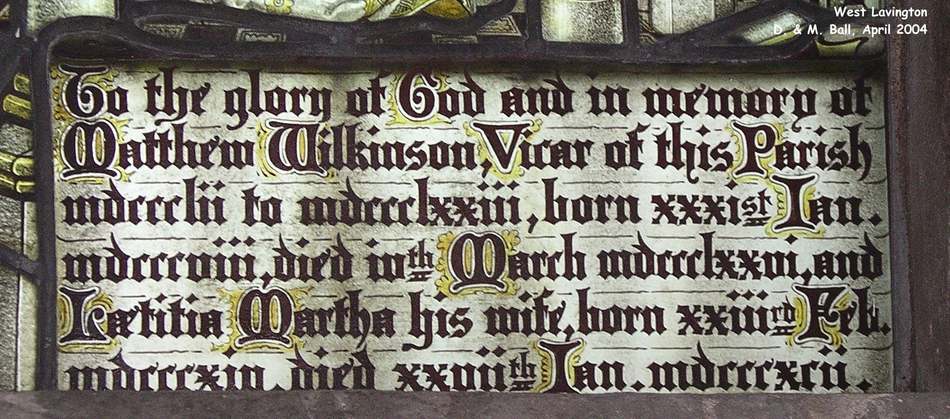 West Lavington
D. & M. Ball, April 2004
To the glory of God and in memory of
Matthew Wilkinson, Vicar of this Parish
mdccclii to mdccclxxiii, born xxxist Jan.
mdcccviii, died ivth March mdccclxxvi, and
Lætitia Martha his wife, born xxiiird Feb.
mdcccxiv, died xxviith Jan. mdcccxcii.